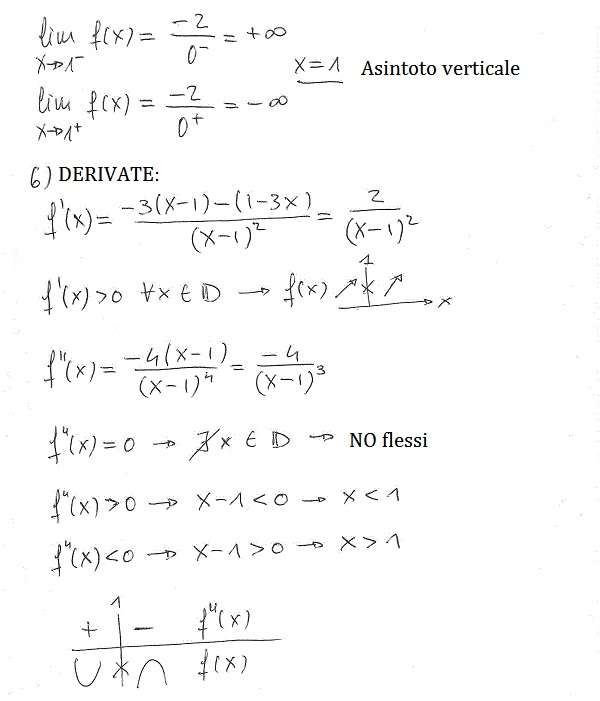 lim x→1⁻ f(x) = -2/0⁻ = +∞
x=1 Asintoto verticale
lim x→1⁺ f(x) = -2/0⁺ = -∞
6) DERIVATE:
f'(x) = (-3(x-1)-(1-3x))/(x-1)² = 2/(x-1)²
f'(x)>0 ∀x∈𝔻 → f(x) ↗ 1 ↗ x
f"(x) = (-4(x-1))/(x-1)⁴ = -4/(x-1)³
f"(x)=0 → ∄x∈𝔻 → NO flessi
f"(x)>0 → x-1<0 → x<1
f"(x)<0 → x-1>0 → x>1
1
+ - f"(x)
∪ ∩ f(x)